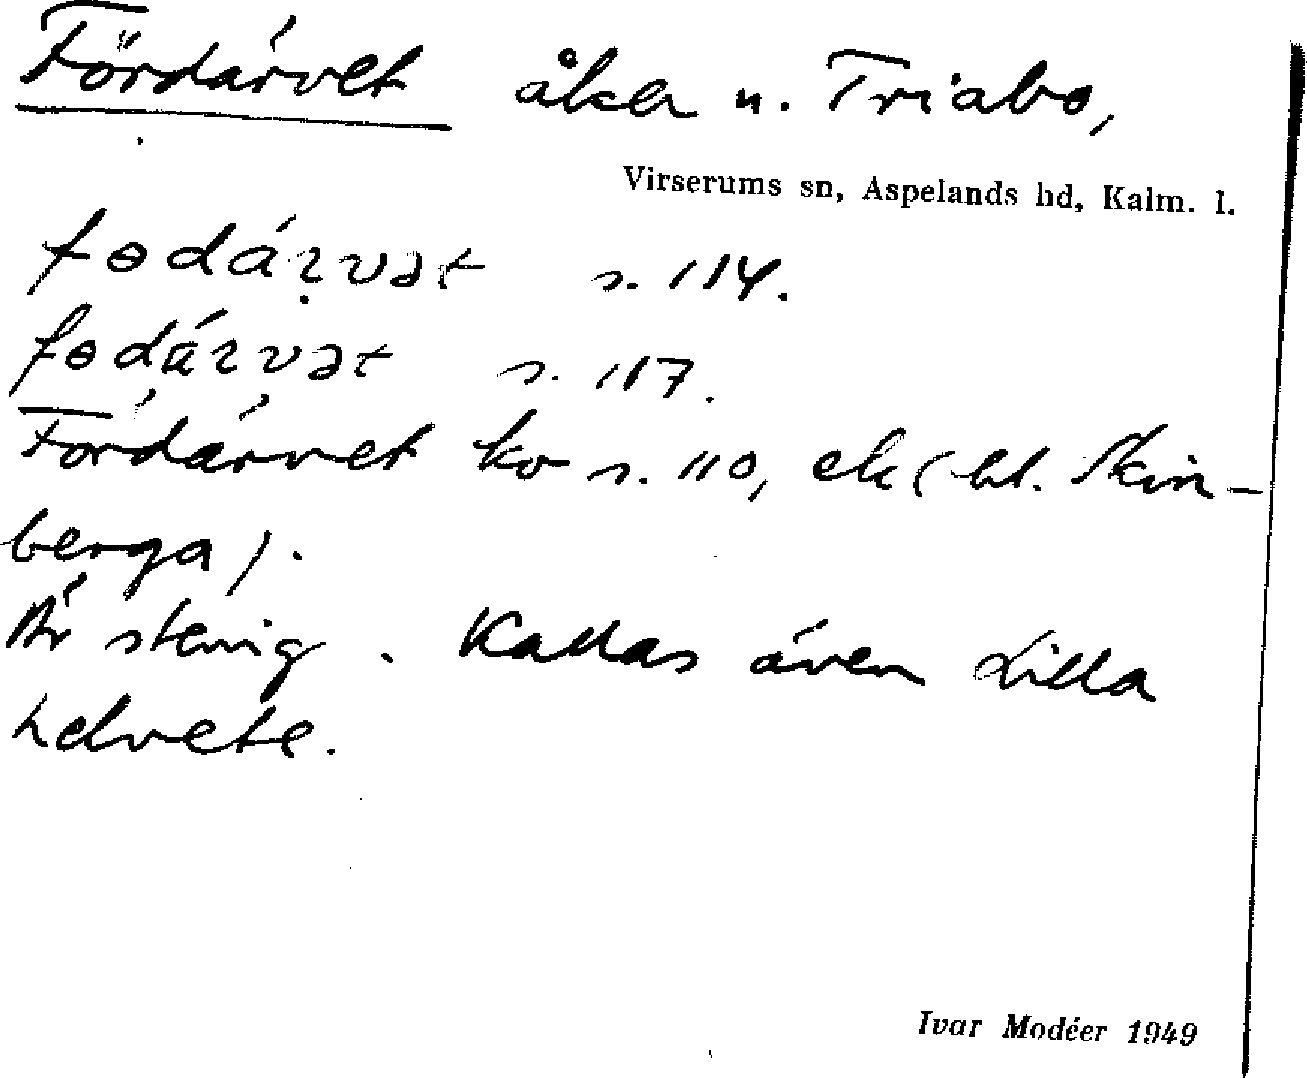 Fördärvet åker u. Triabo,
Virserums sn, Aspelands hd, Kalm. l.
fɵdárvət s. 114.
fɵdárvət s. 117.
Fördärvet ko s. 110, ek (bl. Skin-
berga).
Är stenig. Kallas även Lilla
helvete.
Ivar Modéer 1949